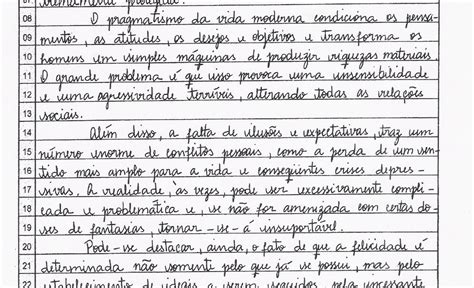 07
08 O pragmatismo da vida moderna condiciona os pensa-
09 mentos, as atitudes, os desejos e objetivos e transforma os
10 homens em simples máquinas de produzir riquezas materiais.
11 O grande problema é que isso provoca uma insensibilidade
12 e uma agressividade terríveis, alterando todas as relações
13 sociais.
14 Além disso, a falta de ilusões e expectativas, traz um
15 número enorme de conflitos pessoais, como a perda de um sen-
16 tido mais amplo para a vida e conseqüentes crises depres-
17 sivas. A realidade, às vezes, pode ser excessivamente compli-
18 cada e problemática e, se não for amenizada com certas do-
19 ses de fantasias, tornar-se-á insuportável.
20 Pode-se destacar, ainda, o fato de que a felicidade é
21 determinada não somente pelo que já se possui, mas pelo
22 estabelecimento de ideais a serem seguidos, pela incessante